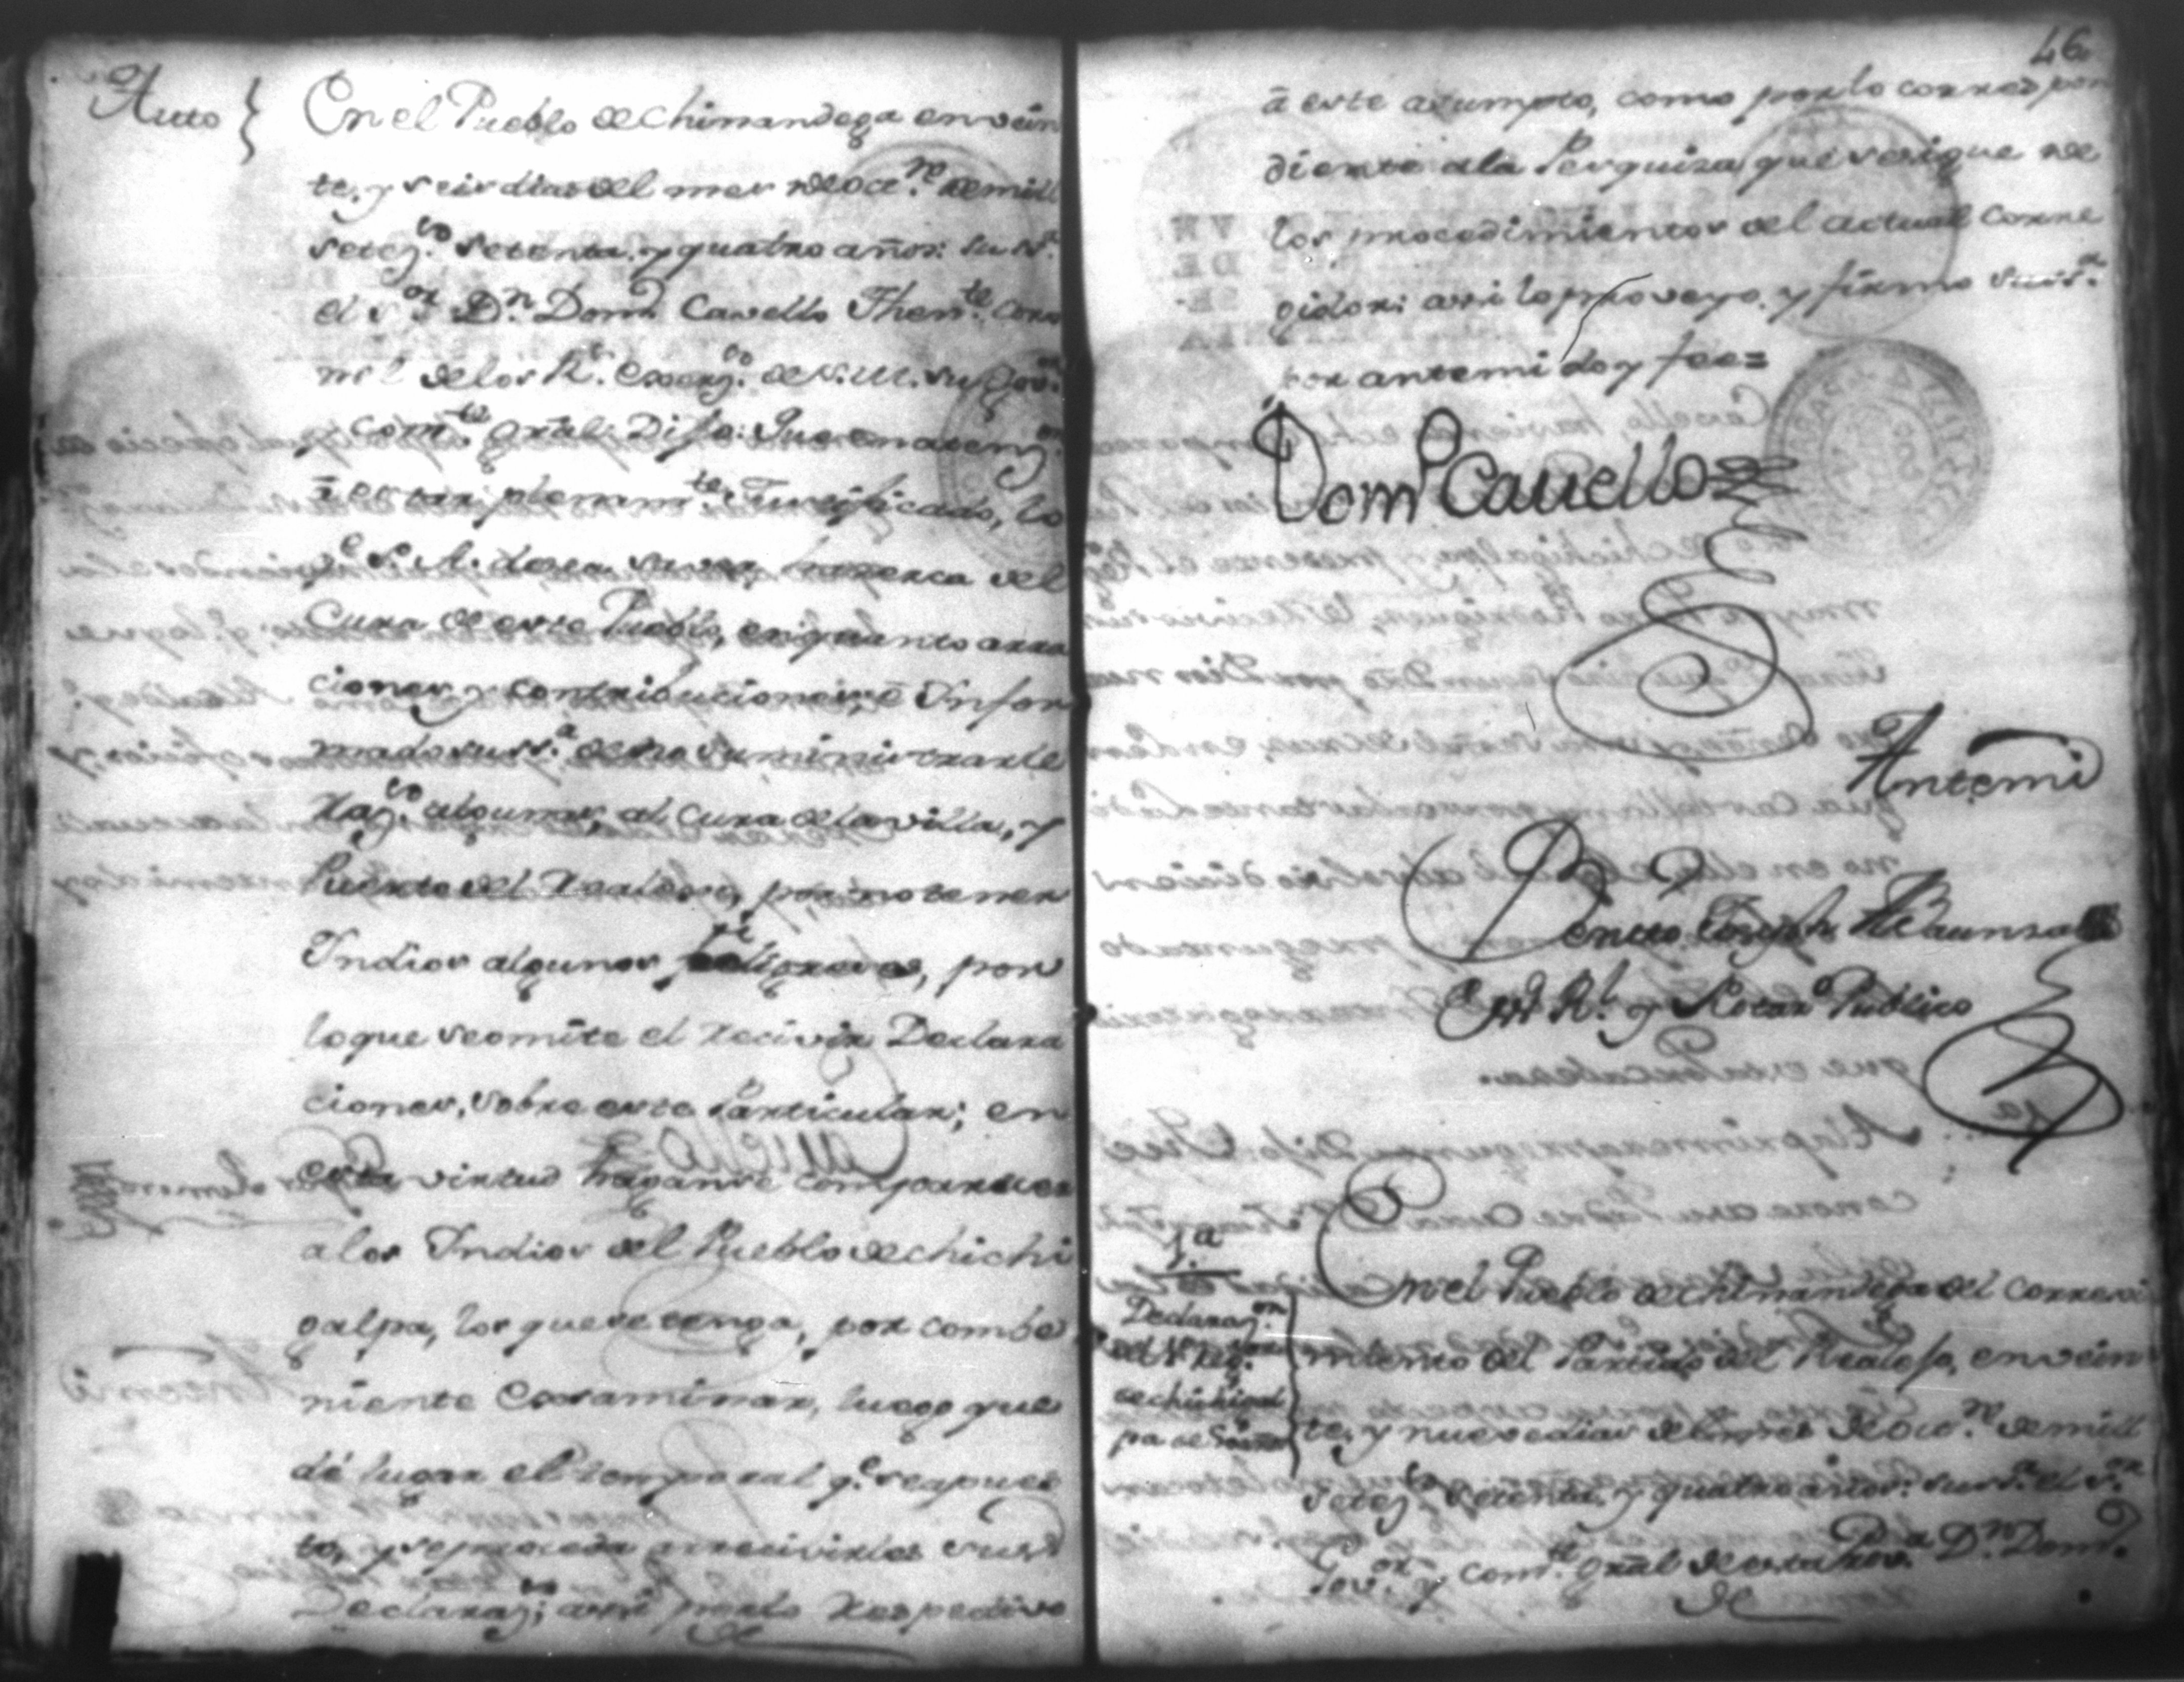 Auto
En el Pueblo de Chinandega en vein
te, y seis dias del mes de Oct.re de mill
setez.os setenta, y quatro años: su S.a
el S.or D.n Dom.o Cavello Then.te Coro
nel de los R.s Exerz.os de S. M. su Gov.or
y Com.te Gral: Dijo: Que en atenz.on
à estar plenam.te Justificado, lo
q.e S. A. desea saver, hazerca del
Cura de este Pueblo, en quanto a rra
ciones, y contribuciones, è Infor
mado su S.a de no suministrarle
raz.s algunas, al Cura de la villa, y
Puerto del Realexo, por no tener
Indios algunos feligreses, por
lo que se omite el recivir Declara
ciones, sobre este Particular; en
esta virtud haganse comparecer
a los Indios del Pueblo de Chichi
galpa, los que se tenga, por combe
niente Examinar, luego que
dé lugar el temporal q.e se a pues
to, y se proceda a recivirles sus
Declaraz.s; assi por lo respectivo
46
à este asumpto, como por lo correspon
diente a la Pesquiza que se sigue de
los procedimientos del actual Corre
gidor: assi lo proveyo, y firmo su S.a
por ante mi doy fee=
Dom.o Cavello
Ante mi
Benito Joseph
Es.no R.l y Notar.o Publico
1.a
Declaraz.on
del
de Chichigal
pa
En el Pueblo de Chinandega del Correxi
miento del Partido del Realejo, en vein
te, y nueve dias del mes de Oct.re de mill
setez.s setenta, y quatro años: su S.a el S.or
Gov.or y Com.te Gral de esta Prov.a D.n Dom.o